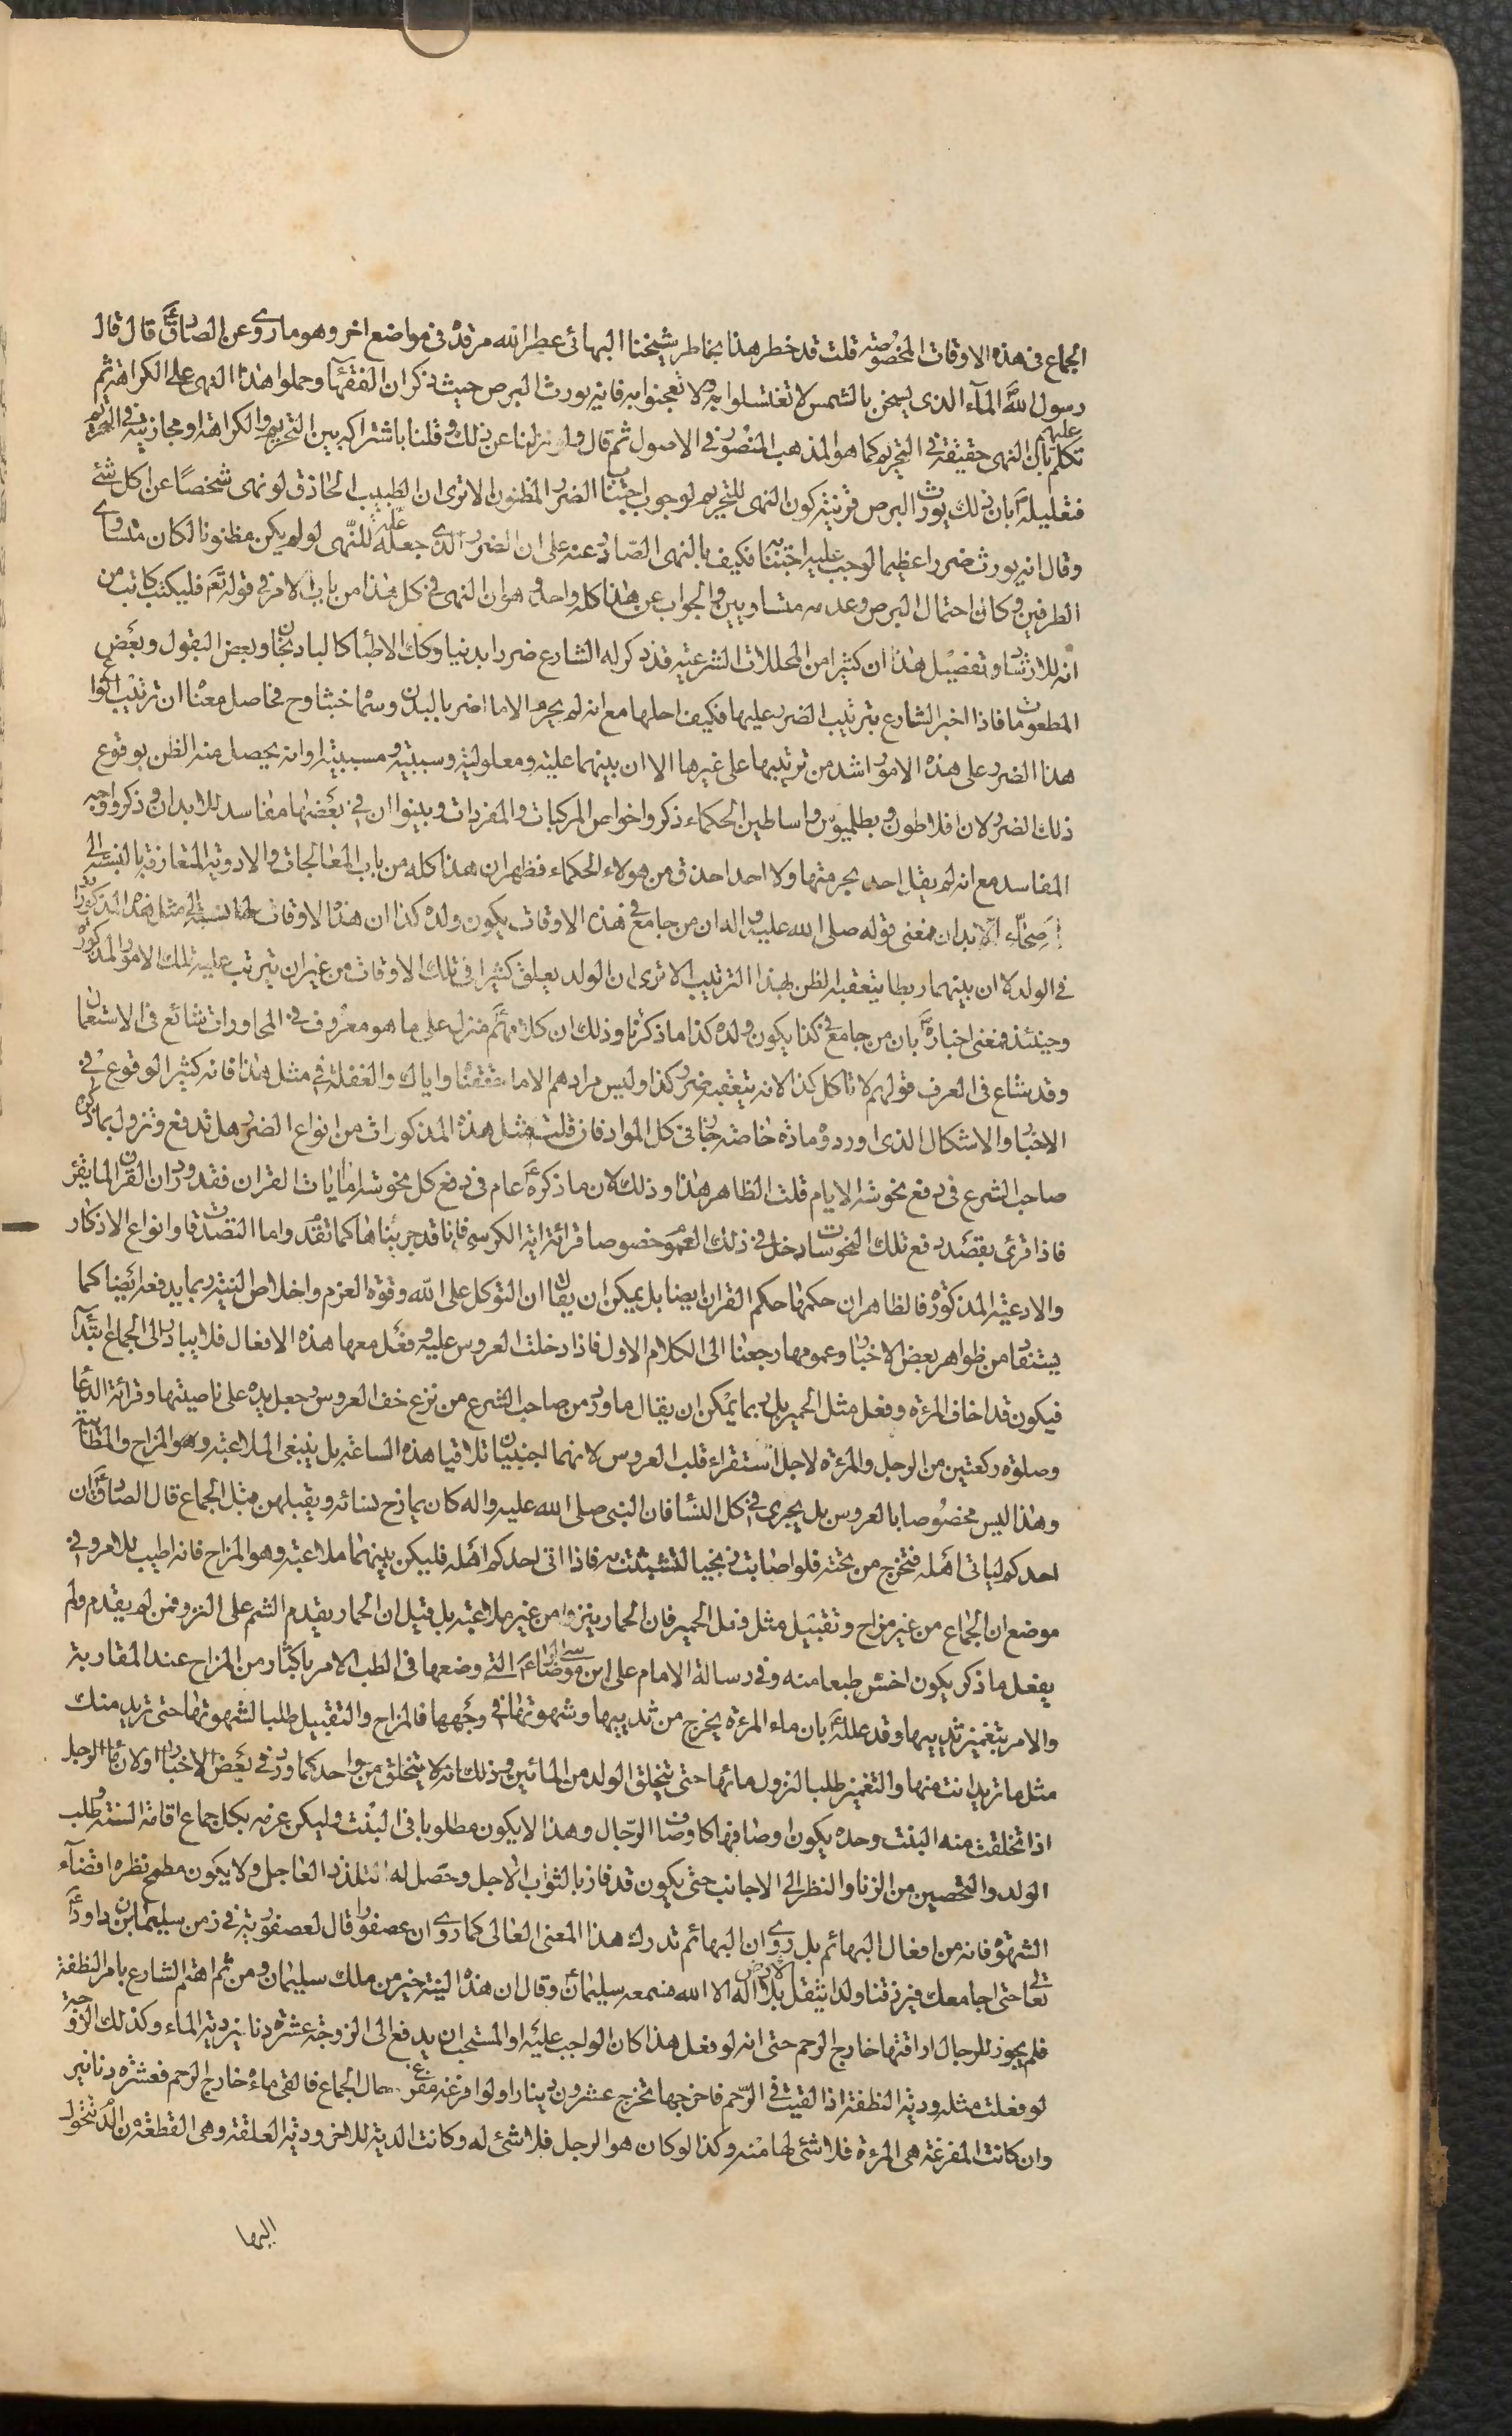 الجماع فى هذه الاوقات المخصوصة قلت قد خطر هذا بخاطر شيخنا البهائى عطر الله مرقده فى مواضع اخر وهو ما روى عن الصادقؑ قال قال
رسول اللهؐ المآء الذى يسخن بالشمس لا تغتسلوا به ولا تعجنوا به فانه يورث البرص حيث ذكر ان الفقهآء حملوا هذا النهى على الكراهة ثم
تكلم عليهم بان النهى حقيقة فى التحريم كما هو المذهب المنصور فى الاصول ثم قال ولو نزلنا عن ذلك وقلنا باشتراكه بين التحريم والكراهة او مجازيته فى التحريم
فتعليلهؐ بان ذلك يورث البرص قرينة كون النهى للتحريم لوجوب اجتناب الضرر المظنون الا ترى ان الطبيب الحاذق لو نهى شخصًا عن اكل شئ
وقال انه يورث ضررا عظيما لوجب عليه اجتنابه فكيف بالنهى الصادر عنه على ان الضرر الذى جعله علة للنهى لو لم يكن مظنونا لكان متساوى
الطرفين وكان احتمال البرص وعدمه متساويين والجواب عن هذا كله واحد وهو ان النهى فى كل هذا من باب الامر فى قوله تعم فليكتب كاتب من
انه للارشاد وتفصيل هذا ان كثيرا من المحللات الشرعية قد ذكر له الشارع ضررا بدنيا وكك الاطبا كالبادنجان وبعض البقول وبعض
المطعومات فاذا اخبر الشارع بترتيب الضرر عليها فكيف احلها مع انه لم يحرم الا ما اضر بالبدن وسما خبثا وح فحاصل معنا ان ترتيب انواع
هذا الضرر على هذه الامور اشد من ترتيبها على غيرها الا ان بينهما علية ومعلولية وسببية ومسببية او انه يحصل منه الظن بوقوع
ذلك الضرر لان افلاطون وبطلميوس واساطين الحكماء ذكروا خواص المركبات والمفردات وبينوا ان فى بعضها مفاسد للابدان وذكروا وجه
المفاسد مع انه لم يقل احد بحرمتها ولا احد احذق من هولاء الحكماء فظهر ان هذا كله من باب المعالجات والادوية المتعارفة بالنسبة الى
اصحاء الابدان فمعنى قوله صلى الله عليه واله ان من جامع فى هذه الاوقات يكون ولده كذا ان هذه الاوقات لها نسبة الى مثل هذه المذكورات
فى الولد لا ان بينهما ربطا يتعقبه الظن بهذا الترتيب الا ترى ان الولد يعلق كثيرا فى تلك الاوقات من غير ان يترتب عليه تلك الامور المذكورة
وحينئذ فمعنى اخبارهؐ بان من جامع فى كذا يكون ولده كذا ما ذكرنا وذلك ان كلامهم منزل على ما هو معروف فى المحاورات شائع فى الاستعمال
وقد شاع فى العرف قولهم لا تاكل كذا لانه يتعقبه ضرر كذا وليس مرادهم الا ما حققنا واياك والغفلة فى مثل هذا فانه كثير الوقوع فى
الاخبار والاشكال الذى اوردوه مادة خاصة جار فى كل المواد فان قلت مثل هذه المذكورات من انواع الضرر هل تدفع وتزول بما ذكره
صاحب الشرع فى دفع نحوسة الايام قلت الظاهر هذا وذلك لان ما ذكره عام فى دفع كل نحوسة اما ايات القران فقد ورد ان القران لما يقرء
فاذا قرئ بقصد دفع تلك النحوسات دخل فى ذلك العموم خصوصا قرائة اية الكرسى فانا قد جربناها كما تقدم واما التصدقات وانواع الاذكار
والادعية المذكورة فالظاهر ان حكمها حكم القران ايضا بل يمكن ان يقال ان التوكل على الله وقوة العزم واخلاص النية ربما يدفعه ايضا كما
يستفاد من ظواهر بعض الاخبار وعمومها رجعنا الى الكلام الاول فاذا دخلت العروس عليه وفعل معها هذه الافعال فلا يبادر الى الجماع ابتدآ
فيكون قد اخاف المرئة وفعل مثل الحمير بل ربما يمكن ان يقال ما ورد من صاحب الشرع من نزع خف العروس وجعل يده على ناصيتها وقرائة الدعا
وصلوة ركعتين من الرجل والمرئة لاجل استقراء قلب العروس لانهما اجنبيان تلاقيا هذه الساعة بل ينبغى الملاعبة وهو المزاح والمطايبة
وهذا ليس مخصوصا بالعروس بل يجرى فى كل النسا فان النبى صلى الله عليه واله كان يمازح نسائه ويقبلهن قبل الجماع قال الصادقؑ ان
احدكم لياتى اهله فتخرج من تحته فلو اصابت زنجيا لتشبثت به فاذا اتى احدكم اهله فليكن بينهما ملاعبة وهو المزاح فانه اطيب للامر وفى
موضع ان الجماع من غير مزاح وتقبيل مثل فعل الحمير فان الحمار ينزوا من غير ملاعبة بل قيل ان الحمار يقدم الشم على النزو فمن لم يقدم ولم
يفعل ما ذكر يكون اخس طبعا منه وفى رسالة الامام على ابن موسى الرضاءؑ التى وضعها فى الطب الامر باكثار من المزاح عند المقاربة
والامر بتغميز ثدييها وقد عللهؑ بان ماء المرئة يخرج من ثدييها وشهوتها فى وجهها فالمزاح والتقبيل طلبا لشهوتها حتى تريد منك
مثل ما تريد انت منها والتغميز طلبا لنزول مائها حتى يتخلق الولد من المائين وذلك انه لا يتخلق من واحد كما ورد فى بعض الاخبار اولان ما الرجل
اذا تخلقت منه البنت وحده يكون اوصافها كاوصاف الرجال وهذا لا يكون مطلوبا فى البنت وليكن عزمه بكل جماع اقامة السنة وطلب
الولد والتحصين من الزنا والنظر الى الاجانب حتى يكون قد فاز بالثواب الاجل وحصل له التلذذ العاجل ولا يكون مطمح نظره اقضآء
الشهوة فانه من افعال البهائم بل روى ان البهائم تدرك هذا المعنى العالى كما روى ان عصفورا قال لعصفورته فى زمن سليمان ابن داودؑ
تعالى حتى اجامعك فيرزقنا ولدا يثقل الارض بلا اله الا الله فسمعه سليمانؑ وقال ان هذه النية خير من ملك سليمان ومن ثم اهتم الشارع بامر النطفة
فلم يجوز للرجال اراقتها خارج الرحم حتى انه لو فعل هذا كان الواجب عليه او المستحب ان يدفع الى الزوجة عشرة دنانير دية الماء وكذلك الزوجة
لو فعلت مثله ودية النطفة اذا القيت فى الرحم فاخرجها تخرج عشرون دينارا ولو افزعه مفزع حال الجماع فالقى ماءه خارج الرحم فعشرة دنانير
وان كانت المفزعة هى المرئة فلا شئ لها منه وكذا لو كان هو الرجل فلا شئ له وكانت الدية للاخر ودية العلقة وهى القطعة من الدم تتحول
اليها